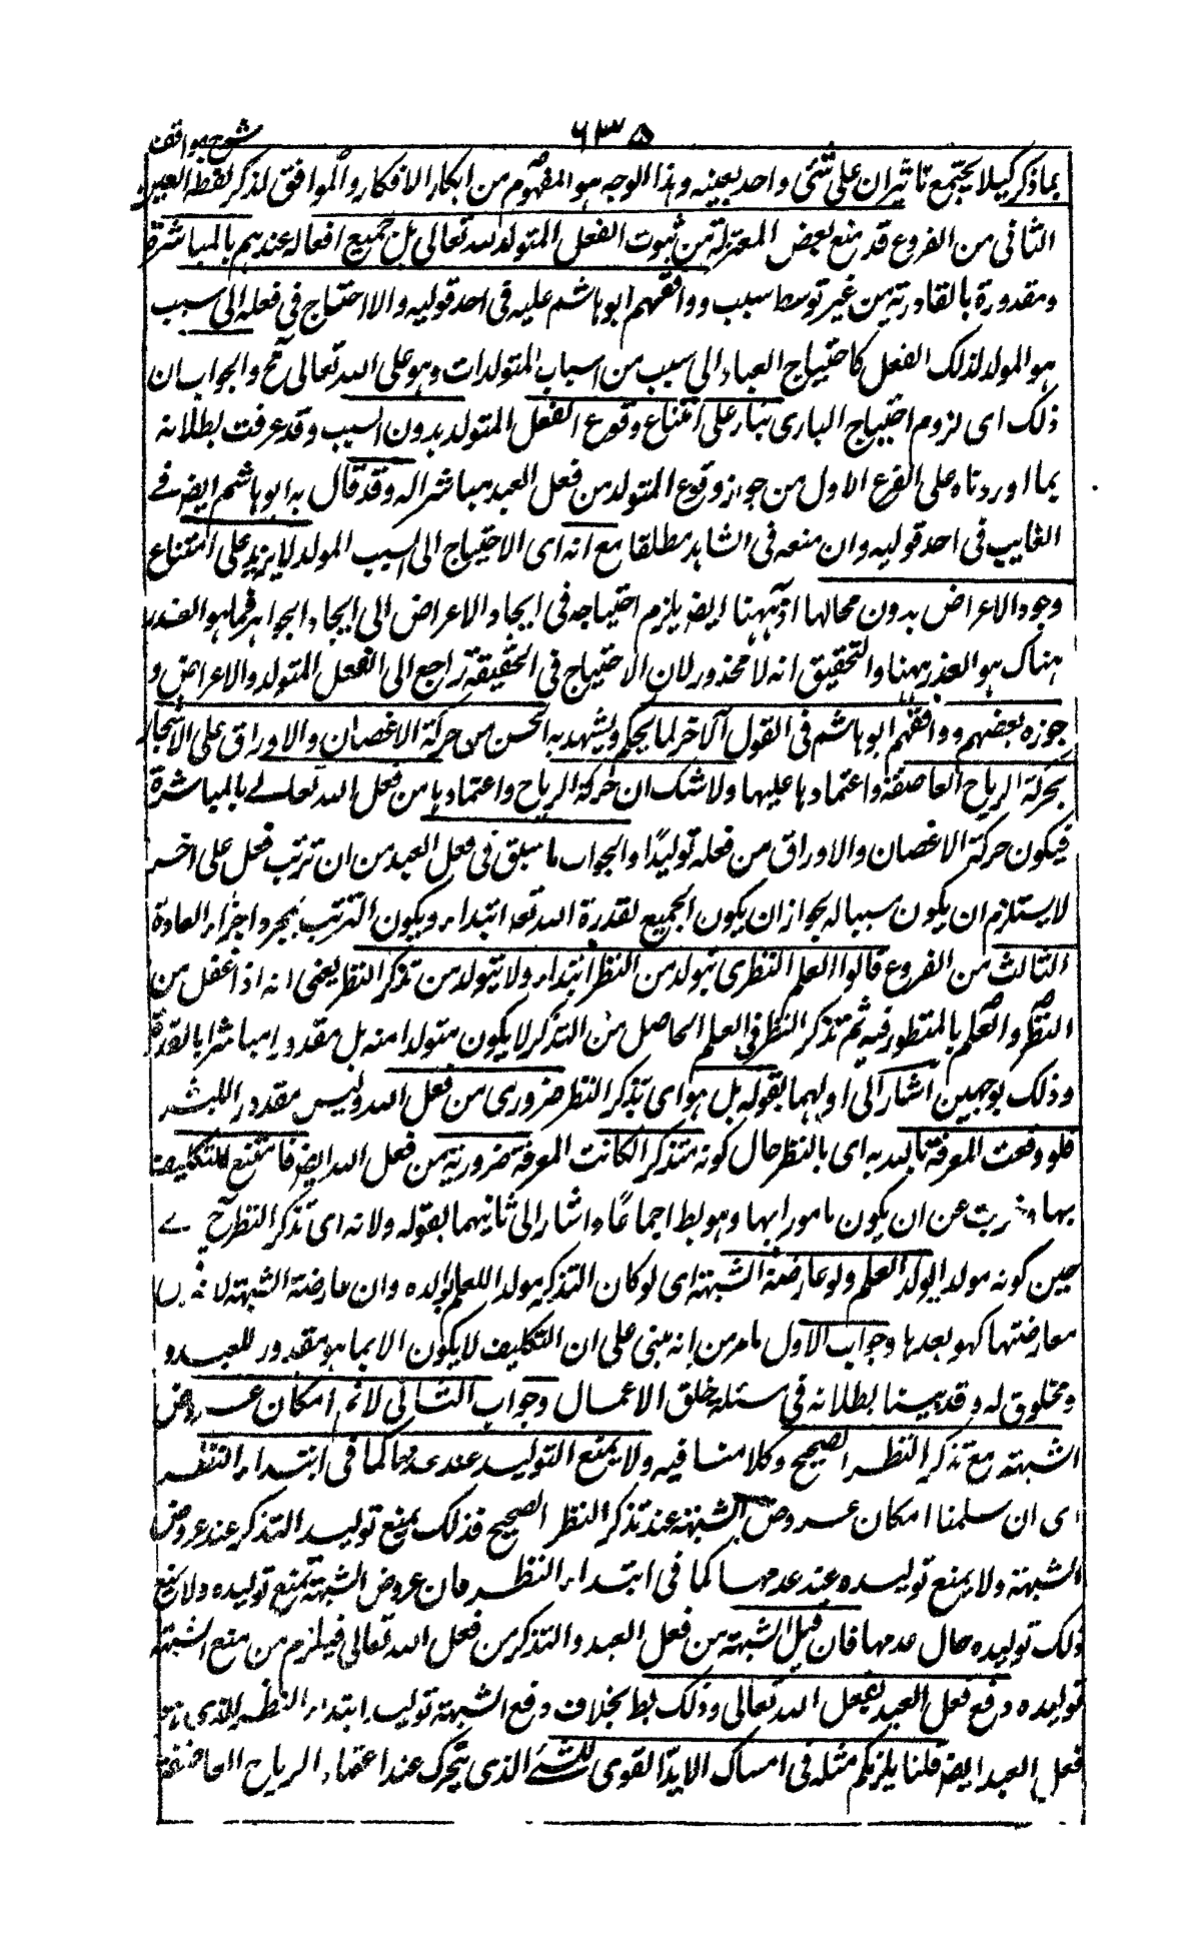 شرح مواقف
٦٣٥
بما ذكر كيلا يجتمع تاثيران على شئ واحد بعينه وهذا الوجه هو المفهوم من ابكار الافكار والموافق لذكر لفظ العبد
الثانى من الفروع قد منع بعض المعتزلة من ثبوت الفعل المتولد لله تعالى بل جميع افعاله عندهم بالمباشرة
ومقدورة بالقادرية من غير توسط سبب ووافقهم ابو هاشم عليه فى احد قوليه والا احتاج فى فعله الى سبب
هو المولد لذلك الفعل كاحتياج العباد الى سبب من اسباب المتولدات وهو على الله تعالى مح والجواب ان
ذلك اى لزوم احتياج البارى بناء على امتناع وقوع الفعل المتولد بدون السبب وقد عرفت بطلانه
بما اوردناه على الفرع الاول من جواز وقوع المتولد من فعل العبد مباشرا له وقد قال به ابو هاشم ايض فے
الغايب فى احد قوليه وان منعه فى الشاهد مطلقا مع انه اى الاحتياج الى السبب المولد لا يزيد على امتناع
وجود الاعراض بدون محالها اذ ههنا ايض يلزم احتياجه فى ايجاد الاعراض الى ايجاد الجواهر فما هو العذر
هناك هو العذر ههنا والتحقيق انه لا محذور لان الاحتياج فى الحقيقة راجع الى الفعل المتولد والاعراض و
جوزه بعضهم ووافقهم ابو هاشم فى القول الآخر لما يحكم ويشهد به الحسن من حركة الاغصان والاوراق على الاشجار
بحركة الرياح العاصفة واعتمادها عليها ولا شك ان حركة الرياح واعتمادها من فعل الله تعالے بالمباشرة
فيكون حركة الاغصان والاوراق من فعله توليدًا والجواب ما سبق فى فعل العبد من ان ترتب فعل على اخر
لا يستلزم ان يكون سببا له بجواز ان يكون الجميع بقدرة الله تعه ابتداء ويكون الترتب بمجرد اجراء العادة
الثالث من الفروع قالوا العلم النظرى يتولد من النظر ابتداء ولا يتولد من تذكر النظر يعنى انه اذا غفل من
النظر والعلم بالمنظور فيه ثم تذكر النظر فى العلم الحاصل من التذكر لا يكون متولدا منه بل مقدورا مباشرا بالقدرة
وذلك بوجهين اشار الى اولهما بقوله بل هو اى تذكر النظر ضرورى من فعل الله وليس مقدورا للبشر
فلو وقعت المعرفة بالله به اى بالنظر حال كونه متذكرا لكانت المعرفة ضرورية من فعل الله ايض فامتنع التكليف
بها وخرجت عن ان يكون مامورا بها وهو بط اجماعًا واشار الى ثانيهما بقوله ولانه اى تذكر النظر ح ے
حين كونه مولدا يولد العلم ولو عارضة الشبهة اى لو كان التذكر مولدا للعلم لولده وان عارضة الشبهة لان
معارضتها كهو بعدها وجواب الاول ما مر من انه مبنى على ان التكليف لا يكون الا بما هو مقدور للعبد و
ومخلوق له وقد بينا بطلانه فى مسئلة خلق الاعمال وجواب الثانى لا ثم امكان عروض
الشبهة مع تذكر النظر الصحيح وكلامنا فيه ولا يمنع التوليد عند عدمها كما فى ابتداء النظر
اى ان سلمنا امكان عروض الشبهة عند تذكر النظر الصحيح فذلك يمنع توليد التذكر عند عروض
الشبهة ولا يمنع توليده عند عدمها كما فى ابتداء النظر فان عروض الشبهة يمنع توليده ولا يمنع
ذلك توليده حال عدمها فان قيل الشبهة من فعل العبد والتذكر من فعل الله تعالى فيلزم من منع الشبهة
توليده دفع فعل العبد بفعل الله تعالى وذلك بط بخلاف دفع الشبهة توليد ابتداء النظر الذى هو
فعل العبد ايض قلنا يلزمكم مثله فى امساك الايدّ القوى للشئ الذى يتحرك عند اعتماد الرياح العاصفة